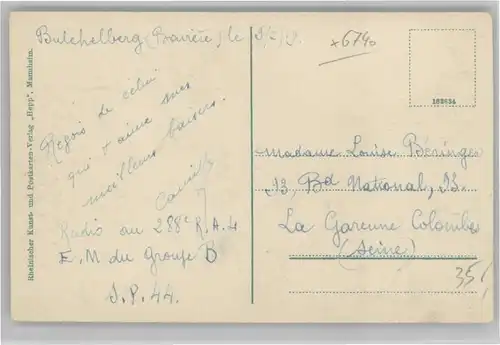 Butchelberg (Bavière), le
x6740
Reçois de celui
qui t'aime mes
meilleurs baisers.
Camille
Radio au 288e R.A.L
E.M du Groupe B
S.P. 44.
103634
Madame Louise Béringer
13, Bd National, 13
La Garenne Colombes
(Seine)
35
Rheinischer Kunst- und Postkarten-Verlag „Hepp“, Mannheim.